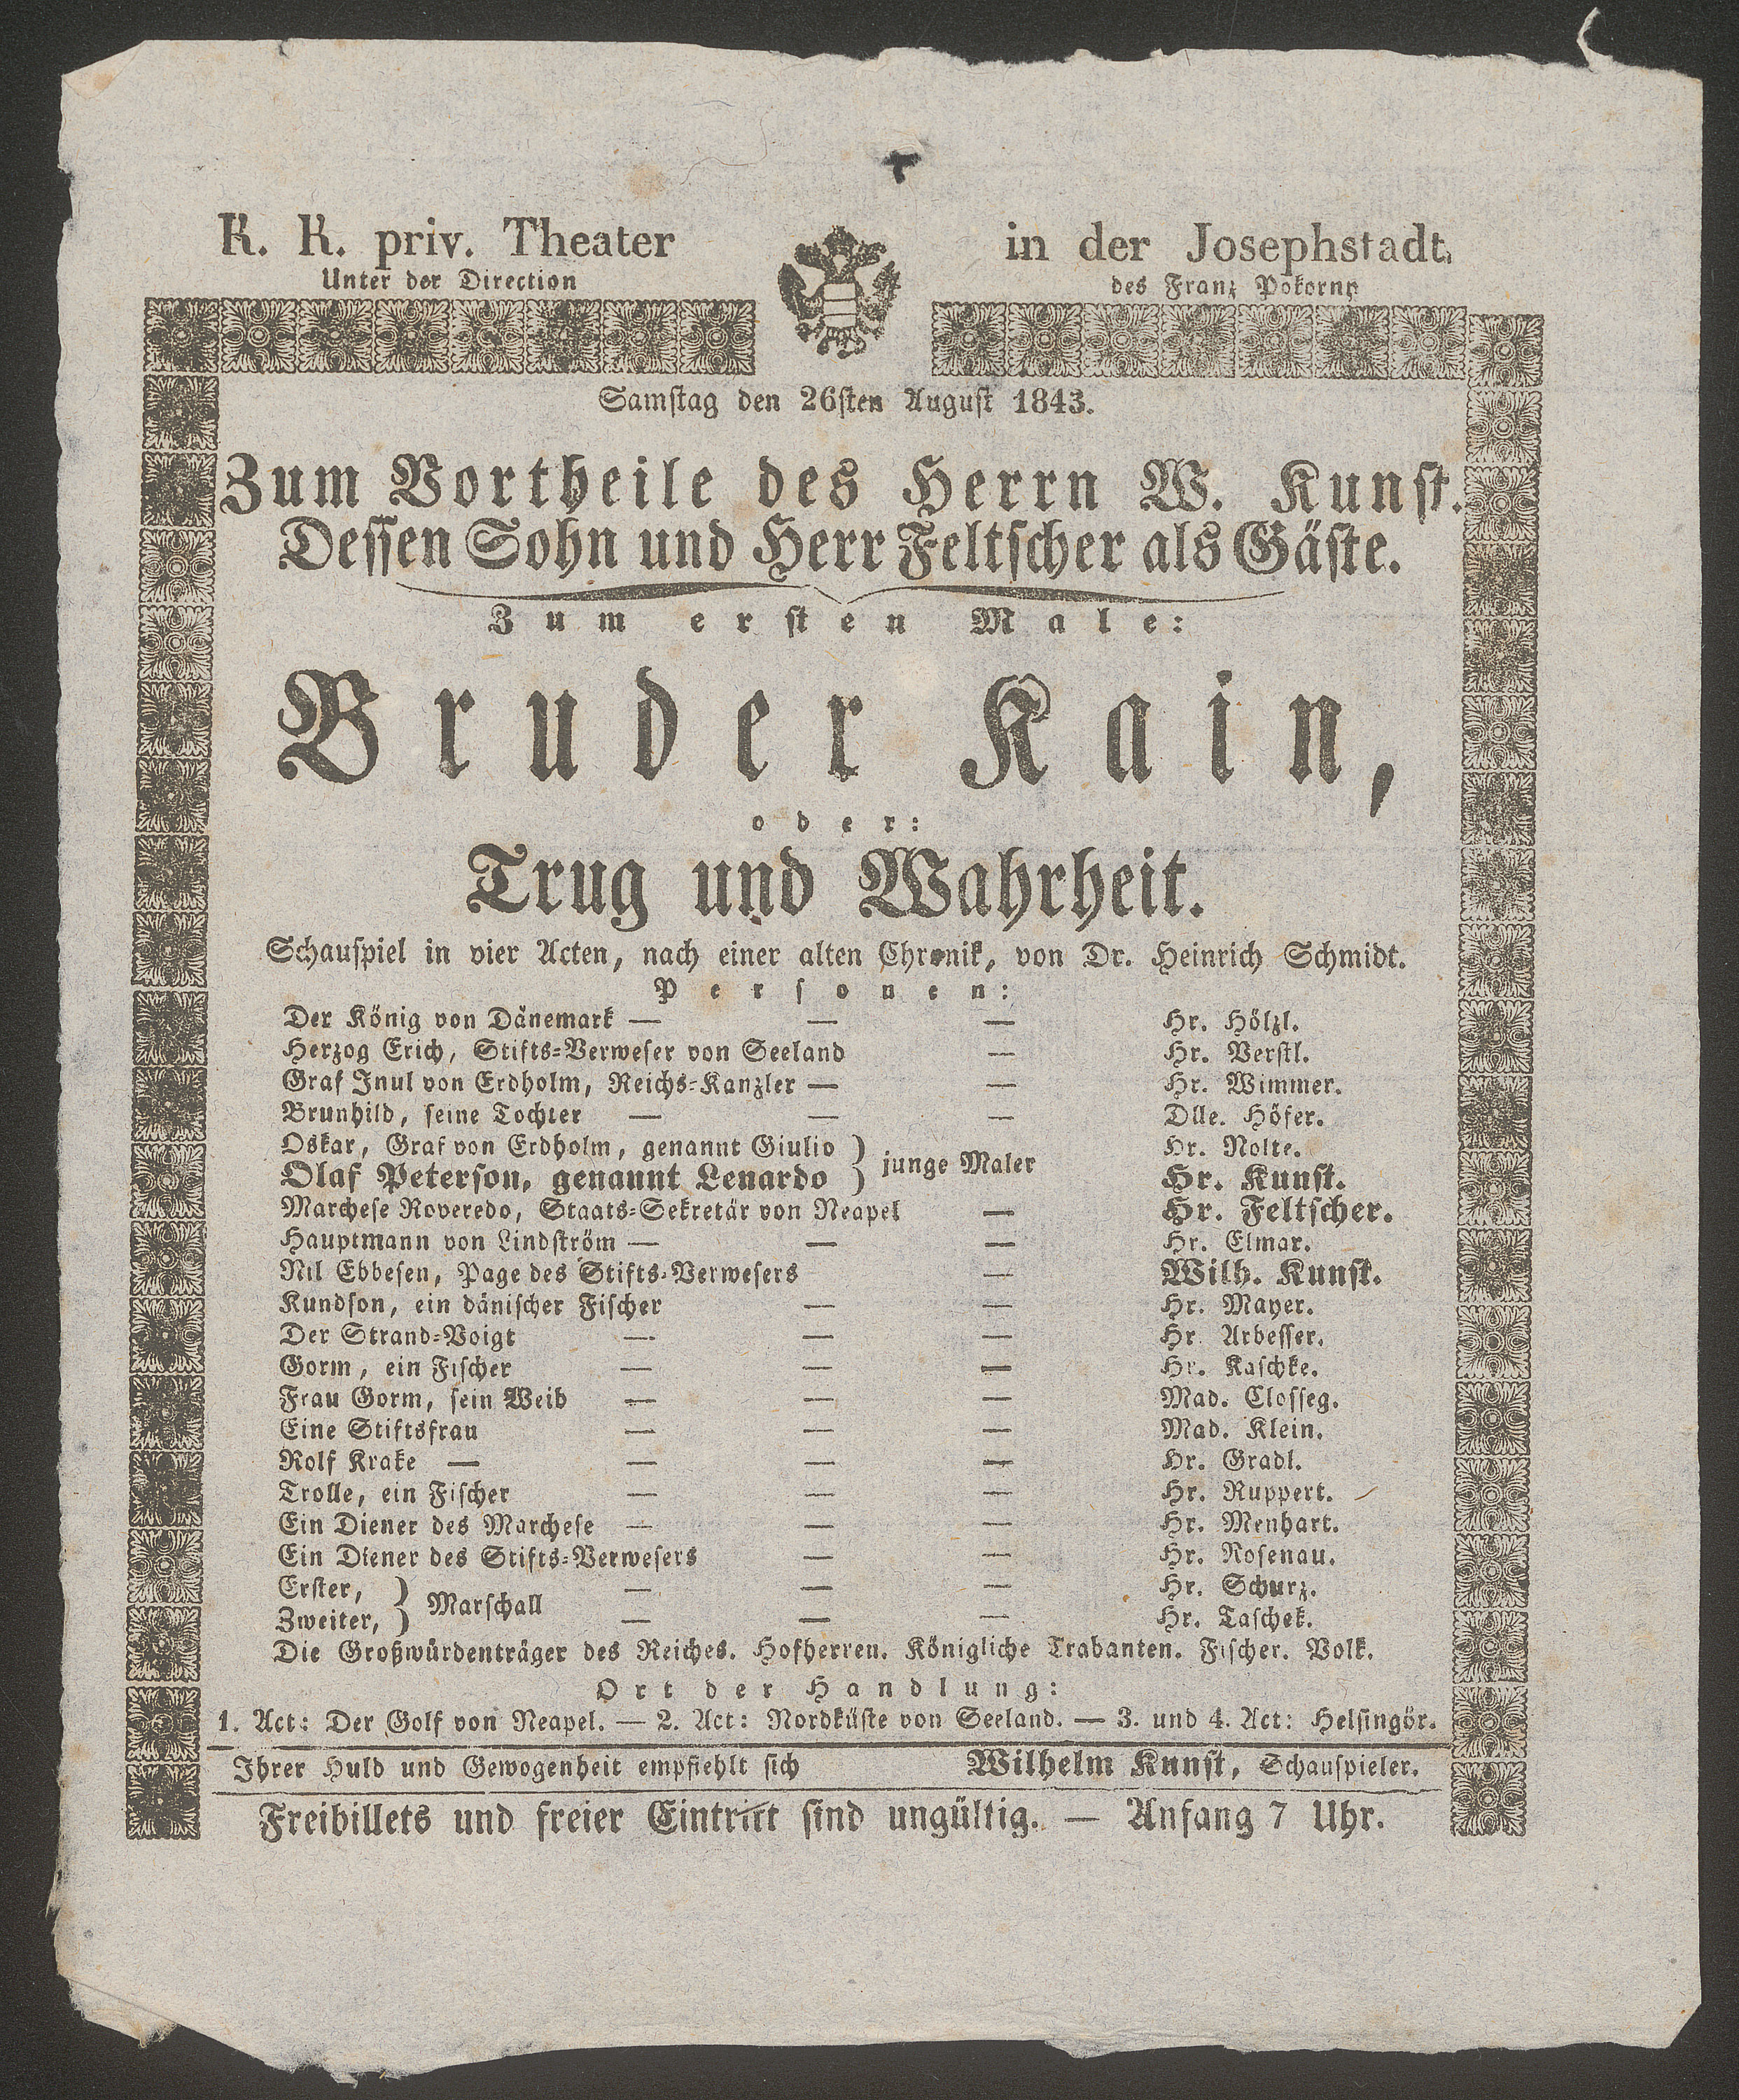 K. K. priv. Theater in der Josephstadt,
Unter der Direction des Franz Pokorny
Samstag den 26sten August 1843.
Zum Vortheile des Herrn W. Kunst.
Dessen Sohn und Herr Feltscher als Gäste.
Zum ersten Male:
Bruder Kain,
oder:
Trug und Wahrheit.
Schauspiel in vier Acten, nach einer alten Chronik, von Dr. Heinrich Schmidt.
Personen:
Der König von Dänemark — — — Hr. Hölzl.
Herzog Erich, Stifts-Verweser von Seeland — Hr. Verstl.
Graf Inul von Erdholm, Reichs-Kanzler — — Hr. Wimmer.
Brunhild, seine Tochter — — — Dlle. Höfer.
Oskar, Graf von Erdholm, genannt Giulio } junge Maler Hr. Nolte.
Olaf Peterson, genannt Lenardo } Hr. Kunst.
Marchese Roveredo, Staats-Sekretär von Neapel — Hr. Feltscher.
Hauptmann von Lindström — — — Hr. Elmar.
Nil Ebbesen, Page des Stifts-Verwesers — Wilh. Kunst.
Kundson, ein dänischer Fischer — — Hr. Mayer.
Der Strand-Voigt — — — Hr. Arbesser.
Gorm, ein Fischer — — — Hr. Kaschke.
Frau Gorm, sein Weib — — — Mad. Closseg.
Eine Stiftsfrau — — — Mad. Klein.
Rolf Krake — — — — Hr. Gradl.
Trolle, ein Fischer — — — Hr. Ruppert.
Ein Diener des Marchese — — — Hr. Menhart.
Ein Diener des Stifts-Verwesers — — Hr. Rosenau.
Erster, } Marschall — — — Hr. Schurz.
Zweiter, } — — — Hr. Taschek.
Die Großwürdenträger des Reiches. Hofherren. Königliche Trabanten. Fischer. Volk.
Ort der Handlung:
1. Act: Der Golf von Neapel. — 2. Act: Nordküste von Seeland. — 3. und 4. Act: Helsingör.
Ihrer Huld und Gewogenheit empfiehlt sich Wilhelm Kunst, Schauspieler.
Freibillets und freier Eintritt sind ungültig. — Anfang 7 Uhr.